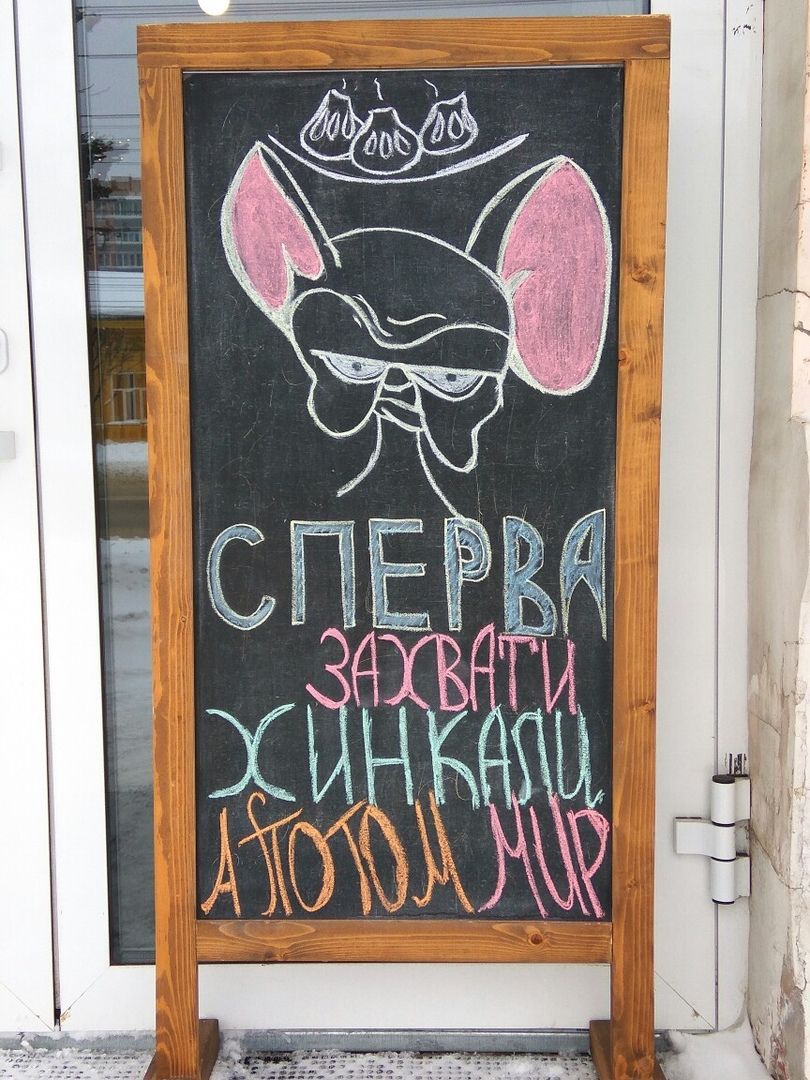 СПЕРВА
ЗАХВАТИ
ХИНКАЛИ
А ПОТОМ МИР